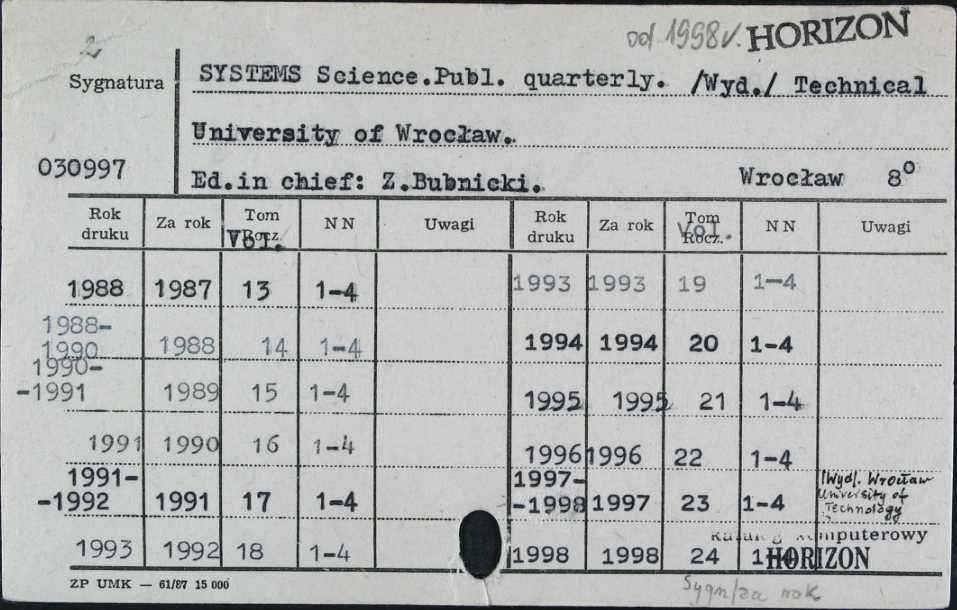 2
od 1998r. HORIZON
Sygnatura
SYSTEMS Science.Publ. quarterly. /Wyd./ Technical
University of Wrocław.
030997
Ed.in chief: Z.Bubnicki. Wrocław 8°
Rok druku Za rok Tom Rocz. Vol. NN Uwagi Rok druku Za rok Tom Rocz. Vol. NN Uwagi
1988 1987 13 1-4 1993 1993 19 1-4
1988-1990 1988 14 1-4 1994 1994 20 1-4
1990--1991 1989 15 1-4 1995 1995 21 1-4
1991 1990 16 1-4 1996 1996 22 1-4
1991--1992 1991 17 1-4 1997--1998 1997 23 1-4 /Wyd/. Wrocław University of Technology
1993 1992 18 1-4 1998 1998 24 1-
Katalog komputerowy
HORIZON
ZP UMK — 61/87 15 000
Sygn/za rok